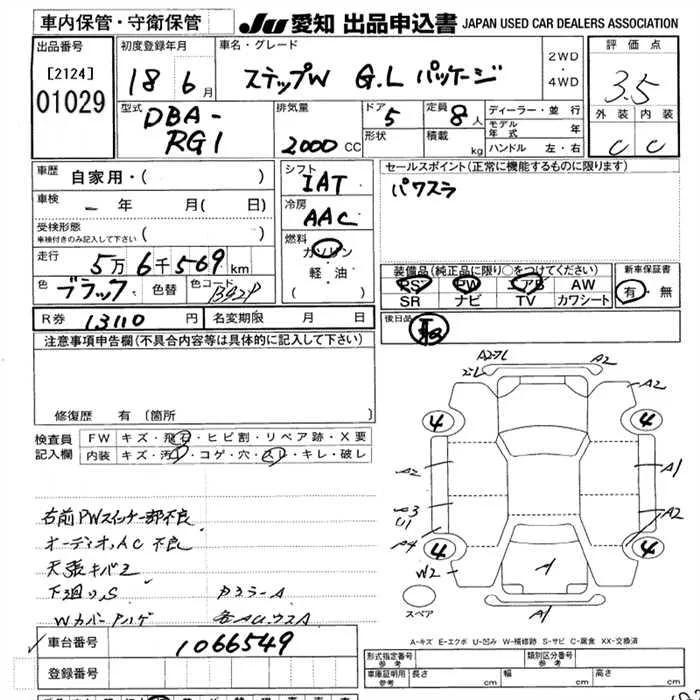 車内保管・守衛保管
JU 愛知 出品申込書 JAPAN USED CAR DEALERS ASSOCIATION
出品番号
[2124]
01029
初度登録年月
18 6月
車名・グレード
ステップW G.L パッケージ
2WD
・
4WD
評価点
3.5
外装 内装
C C
型式
DBA-
RG1
排気量
2000 CC
ドア
5
形状
定員
8人
積載
kg
ディーラー・並行
モデル年式 年
ハンドル 左・右
車歴
自家用・( )
車検
ー 年 月( 日)
受検形態
車検付きのみ記入して下さい ( )
走行
5万6千569km
色
ブラック
色替
色コード
B92P
シフト
IAT
冷房
AAC
燃料
ガソリン
・
軽・油
( )
セールスポイント(正常に機能するものに限ります)
パワスラ
装備品(純正品に限り○をつけてください)
RS PW エアB AW
SR ナビ TV カワシート
新車保証書
有・無
R券 13110 円
名変期限 月 日
後日品
注意事項申告欄(不具合内容等は具体的に記入して下さい)
修復歴 有(箇所
検査員記入欄
FW キズ・飛石・ヒビ割・リペア跡・X要
内装 キズ・汚・コゲ・穴・スレ・キレ・破レ
右前PWスイッチ一部不良
オーディオ,AC 不良
天張キバミ
下廻りS
カラーA
Wカバーハゲ
A2
A2
4
4
A2
A1
A3
U1
A2
A4
4
4
W2
A
スペア
A1
A-キズ E-エクボ U-凹み W-補修跡 S-サビ C-腐食 XX-交換済
車台番号
1066549
登録番号
形式指定番号
参考
類別区分番号
参考
車庫証明用
参考
長さ cm
幅 cm
高さ cm